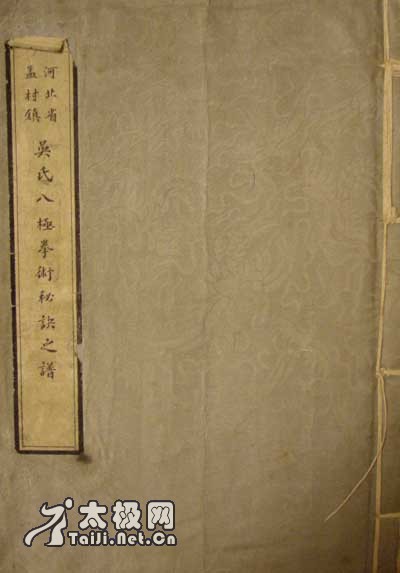 河北省
孟村鎮
吳氏八極拳術秘訣之譜
太极网
TaiJi.Net.Cn